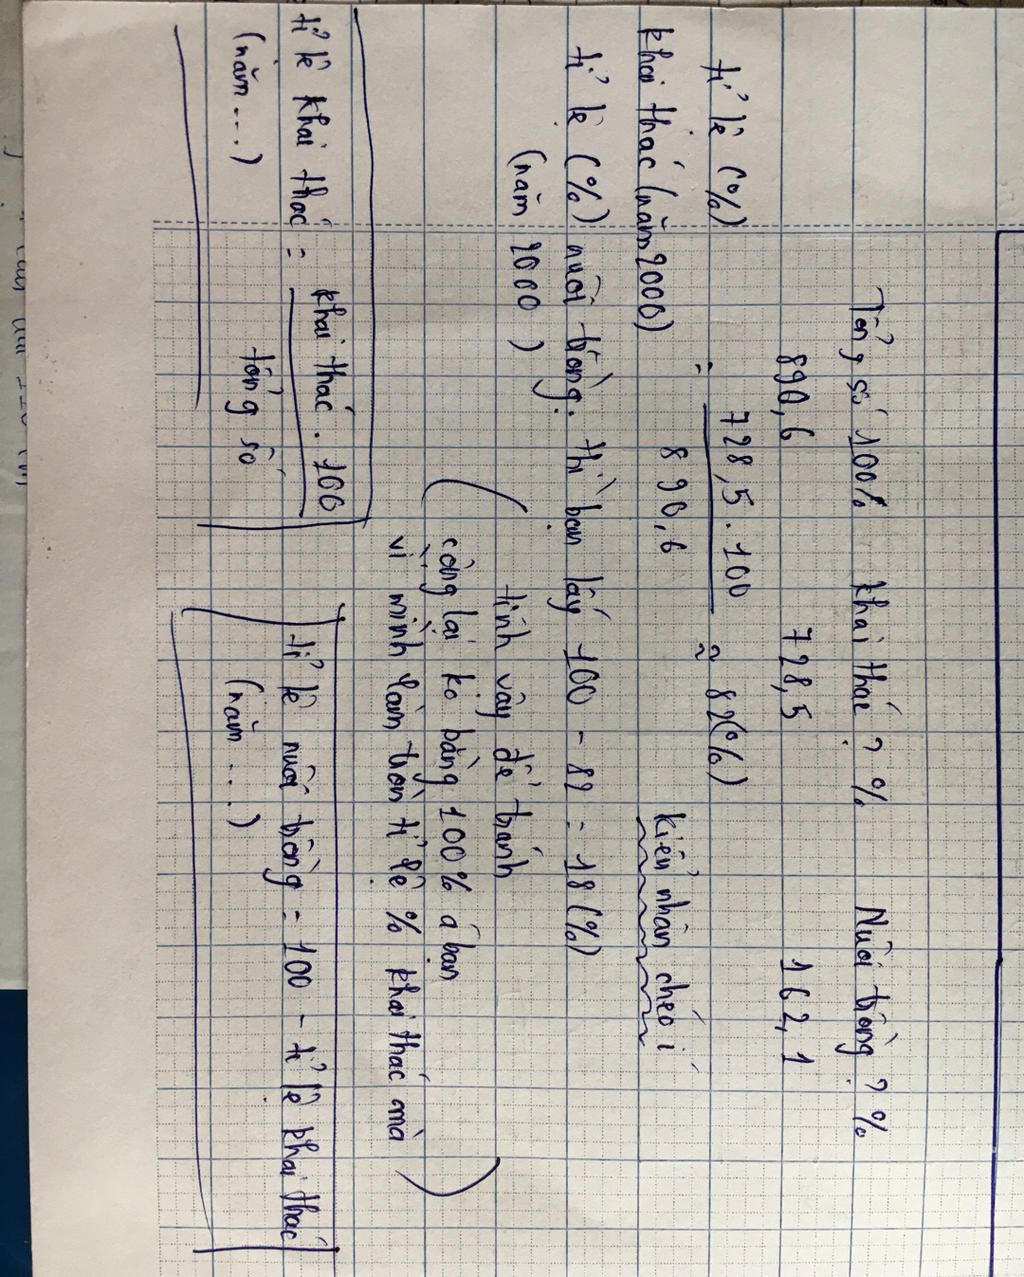 Tổng số 100% khai thác ? % Nuôi trồng ? %
890,6 728,5 162,1
tỉ lệ (%)
khai thác (năm 2000) = 728,5 . 100 / 890,6 ≈ 82(%) kiểu nhân chéo í
tỉ lệ (%) nuôi trồng. thì bạn lấy 100 - 82 = 18(%)
(năm 2000)
(tính vậy để tránh
cộng lại ko bằng 100% á bạn
vì mình làm tròn tỉ lệ % khai thác mà)
tỉ lệ khai thác = khai thác . 100 / tổng số
(năm ...)
tỉ lệ nuôi trồng = 100 - tỉ lệ khai thác
(năm ...)